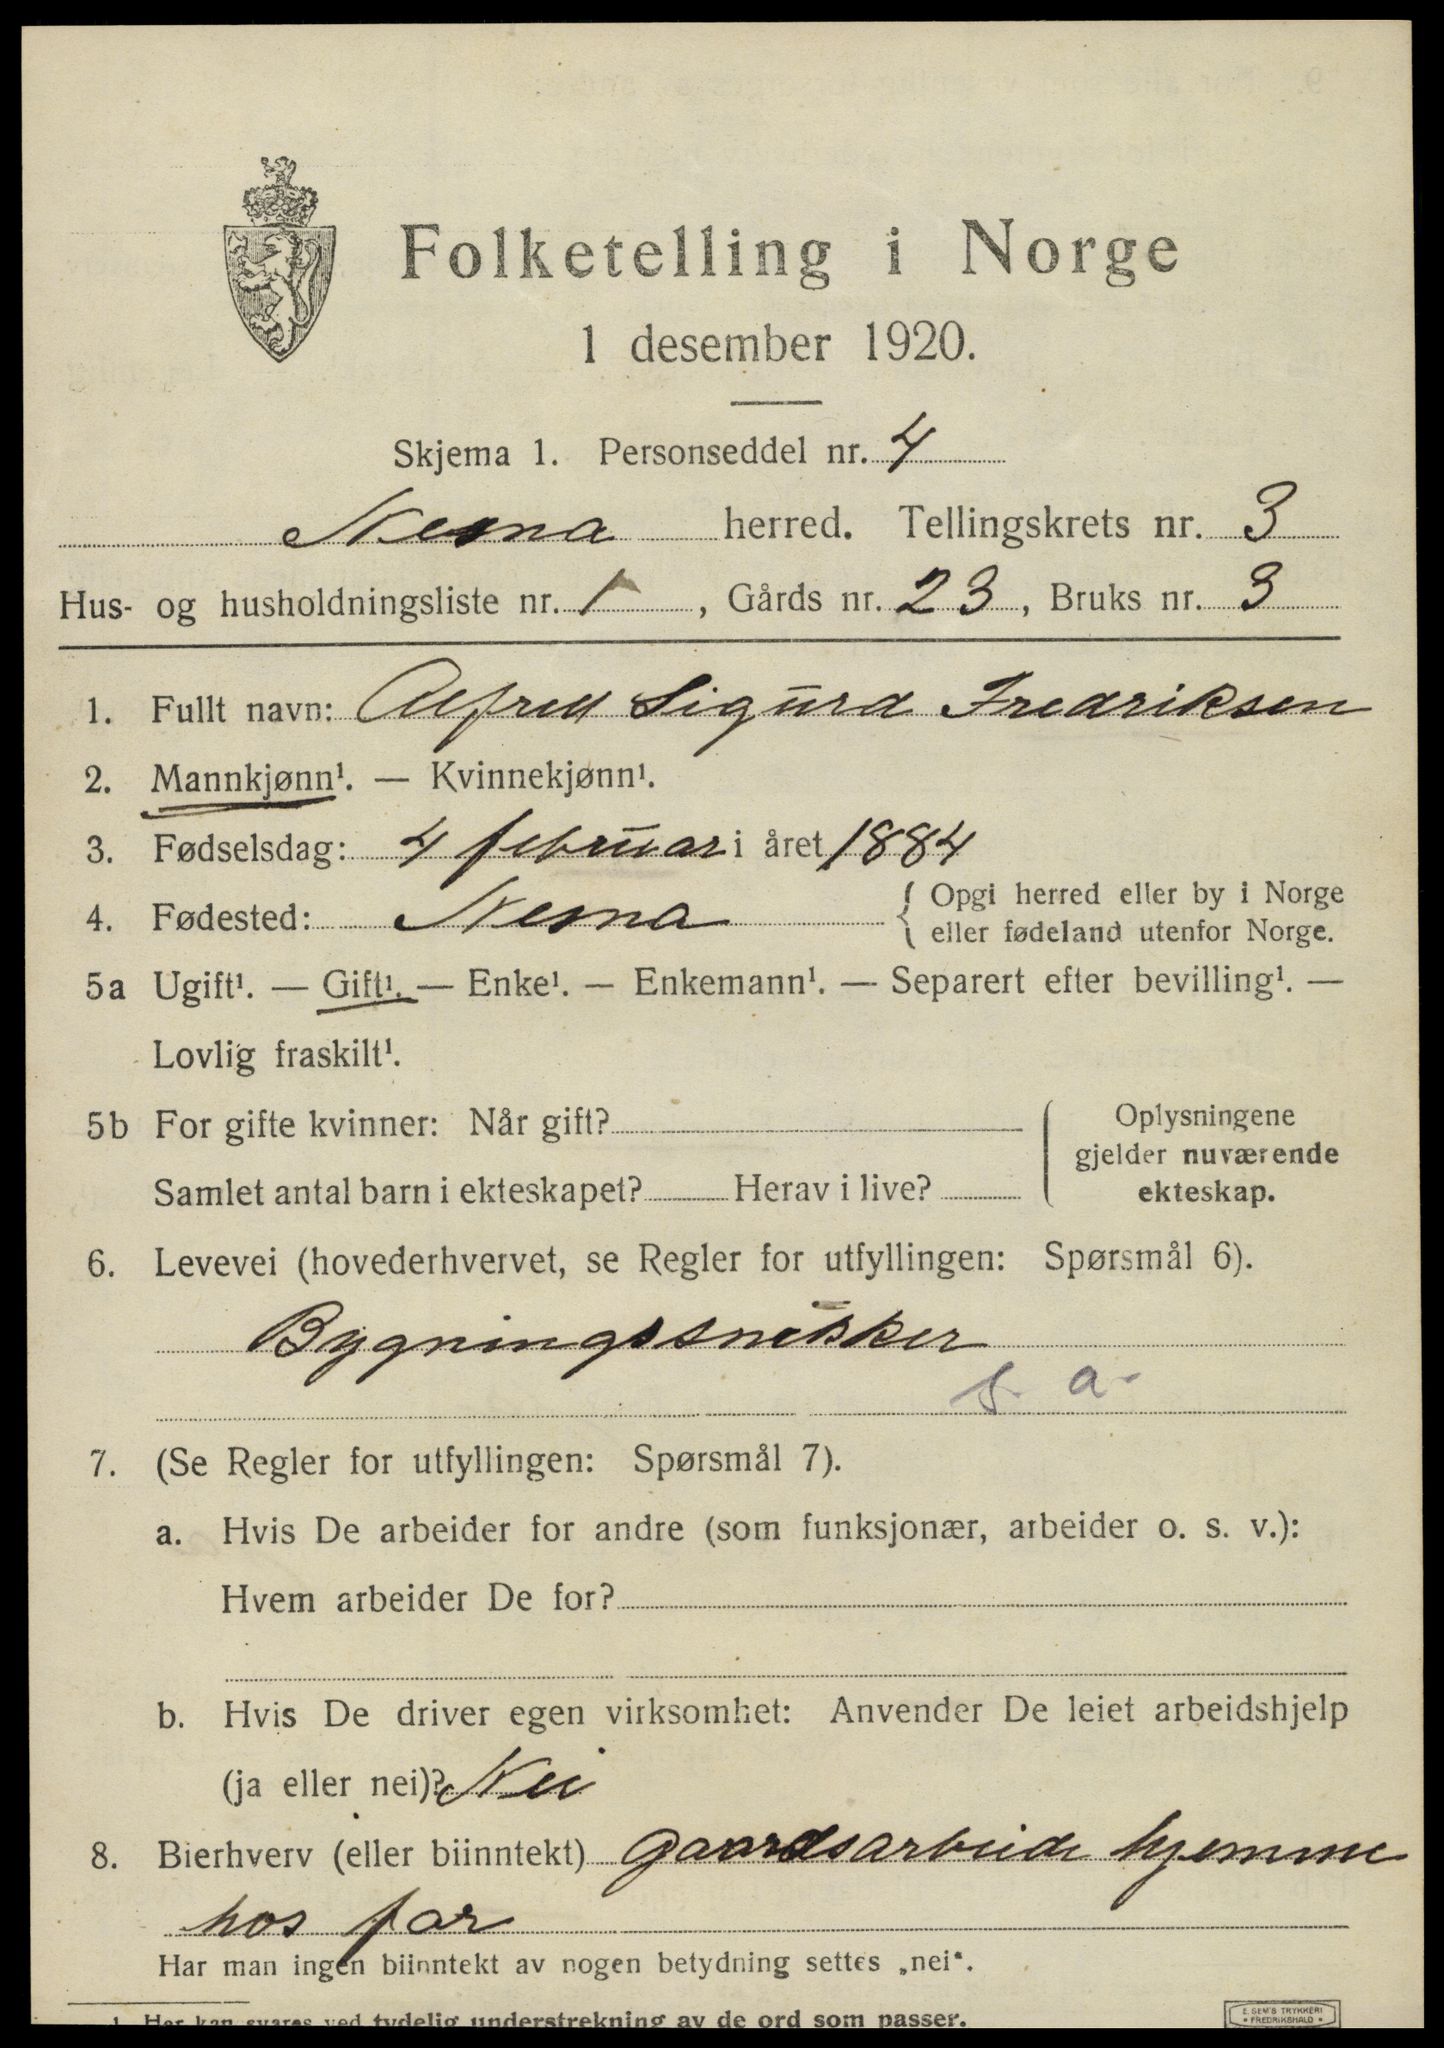 Folketelling i Norge
1 desember 1920.
Skjema 1. Personseddel nr. 4
Nesna herred. Tellingskrets nr. 3
Hus- og husholdningsliste nr. 1, Gårds nr. 23, Bruks nr. 3
1. Fullt navn: Alfred Sigurd Fredriksen
2. Mannkjønn¹. — Kvinnekjønn¹.
3. Fødselsdag: 4 februar i året 1884
4. Fødested: Nesna { Opgi herred eller by i Norge
eller fødeland utenfor Norge.
5a Ugift¹. — Gift¹. — Enke¹. — Enkemann¹. — Separert efter bevilling¹. —
Lovlig fraskilt¹.
5b For gifte kvinner: Når gift?
Samlet antal barn i ekteskapet? Herav i live?
Oplysningene
gjelder nuværende
ekteskap.
6. Levevei (hovederhvervet, se Regler for utfyllingen: Spørsmål 6).
Bygningssnekker
s. a.
7. (Se Regler for utfyllingen: Spørsmål 7).
a. Hvis De arbeider for andre (som funksjonær, arbeider o. s. v.):
Hvem arbeider De for?
b. Hvis De driver egen virksomhet: Anvender De leiet arbeidshjelp
(ja eller nei)? Nei
8. Bierhverv (eller biinntekt) Gaardsarbeide hjemme
hos far
Har man ingen biinntekt av nogen betydning settes „nei“.
1. Her kan svares ved tydelig understrekning av de ord som passer.
E. SEM'S TRYKKERI
• FREDRIKSHALD •